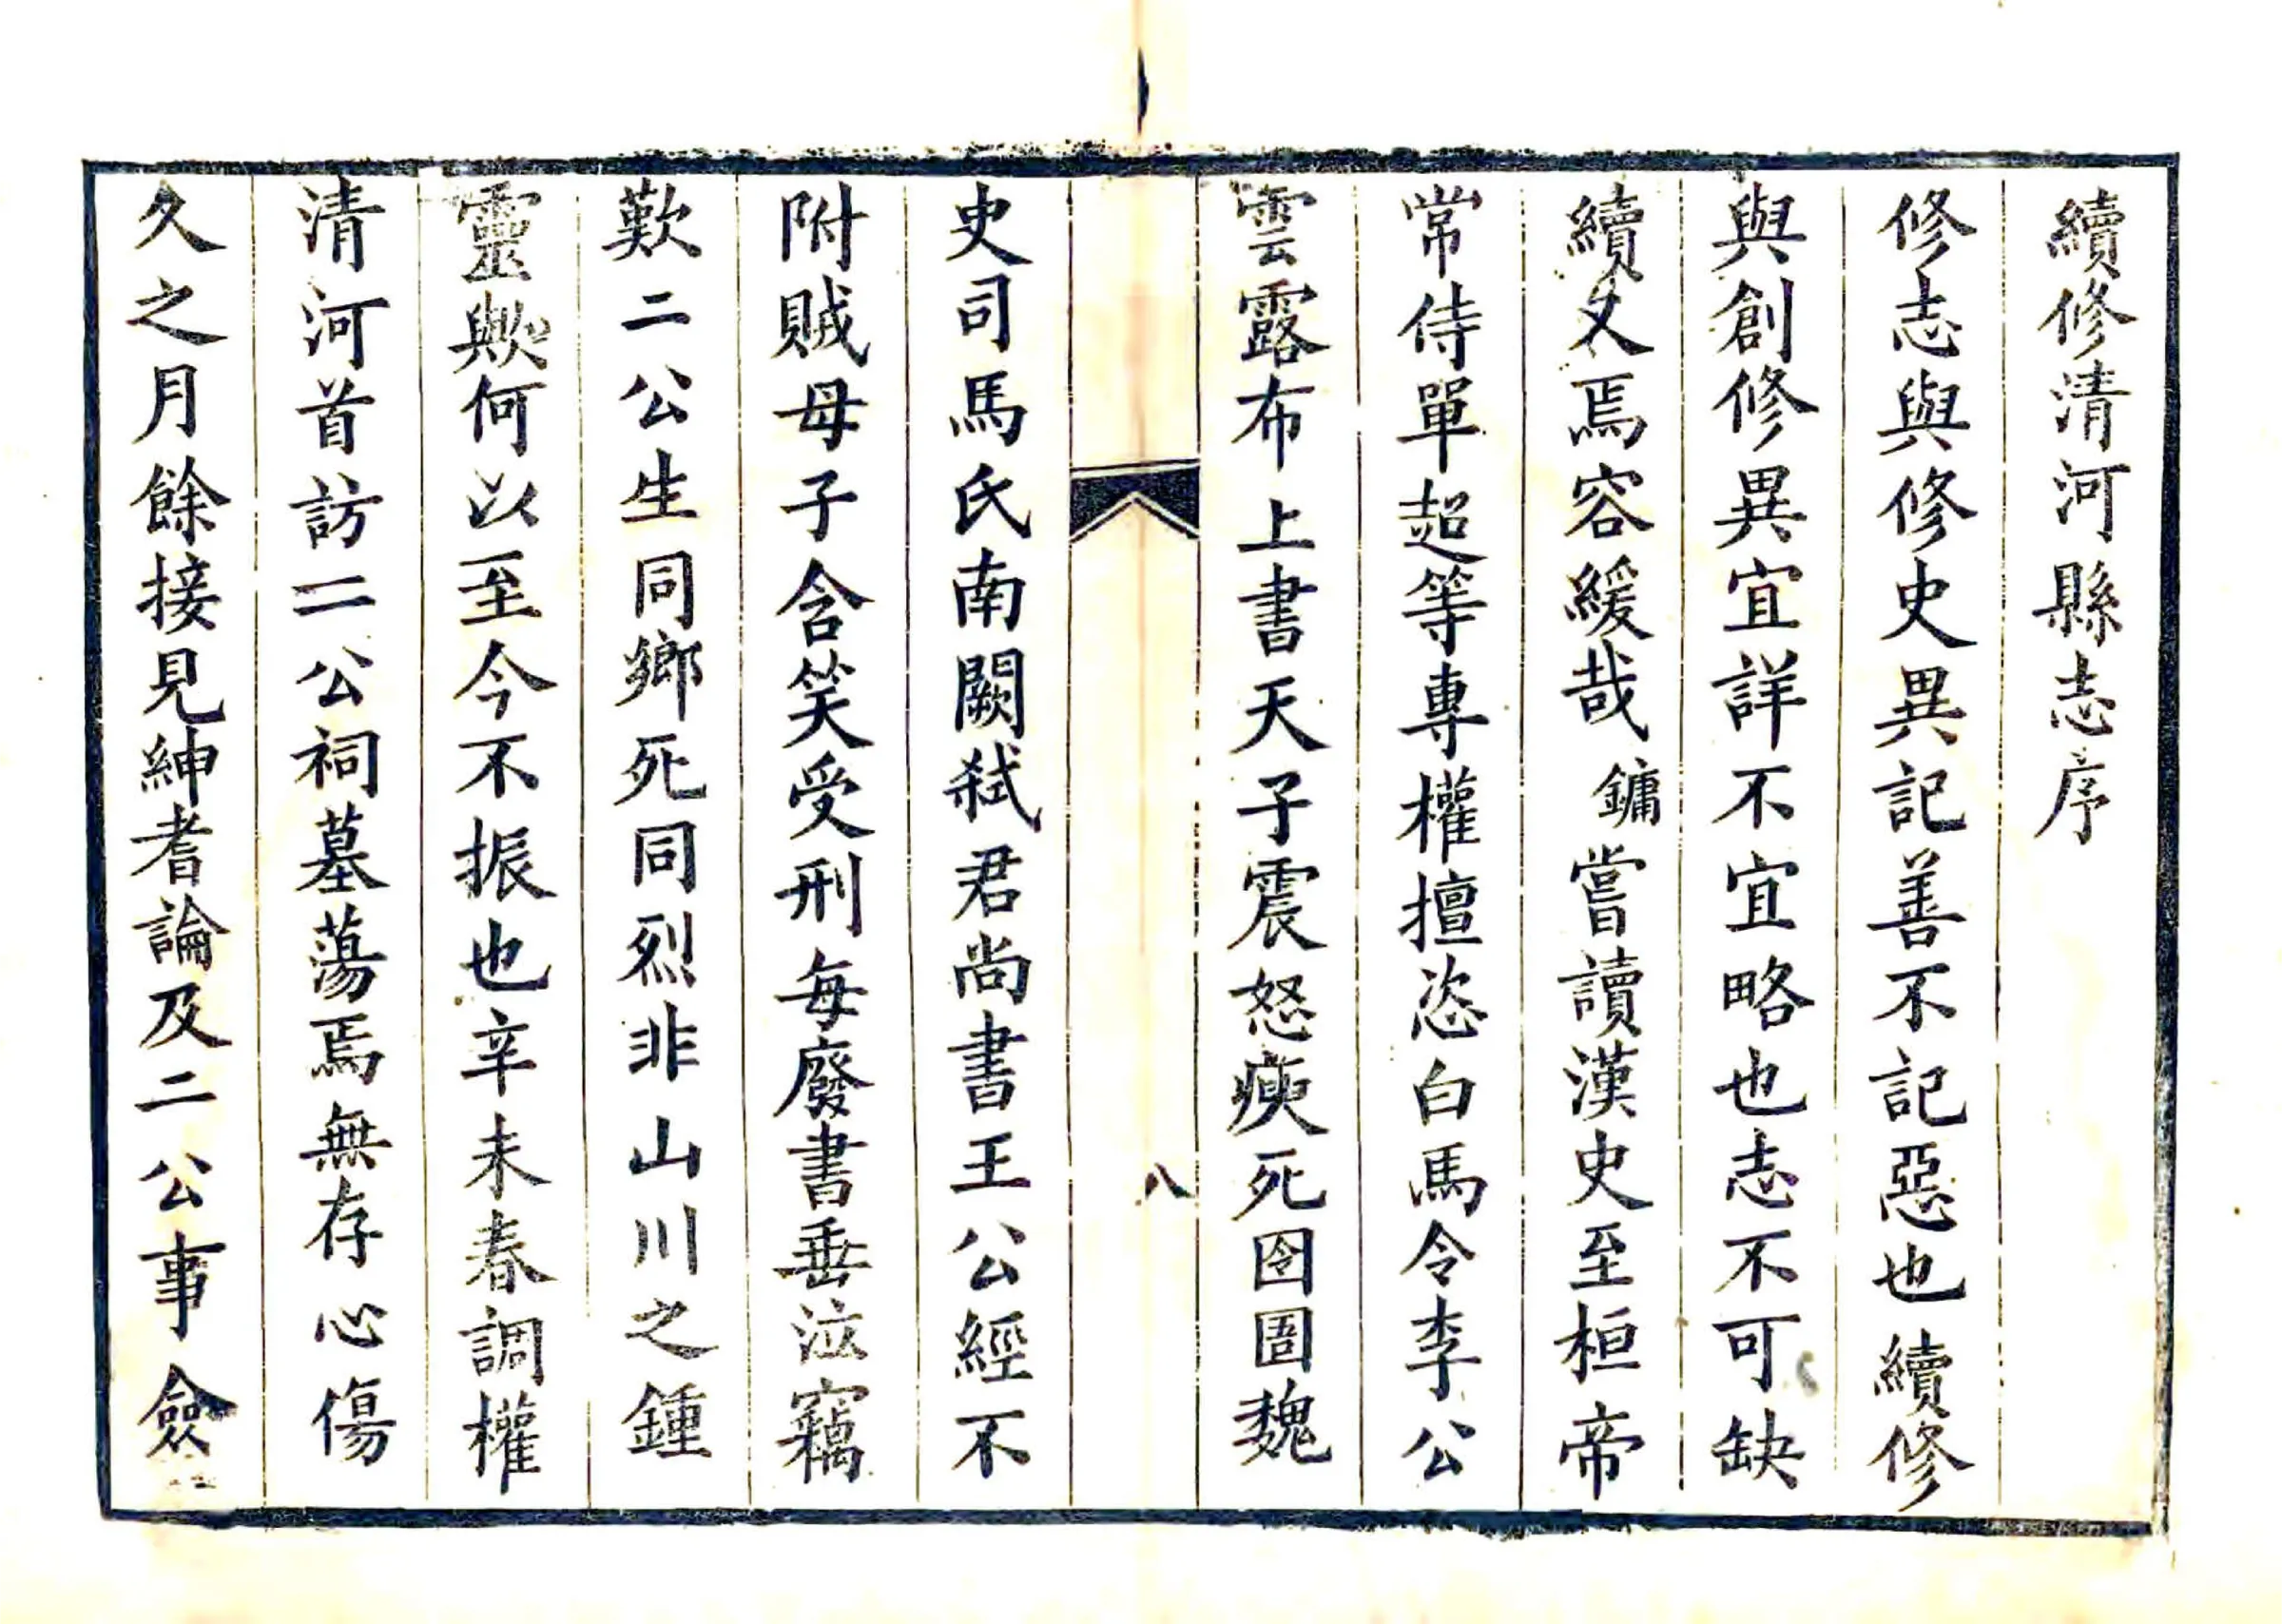 續修清河縣志序
修志與修史異記善不記惡也續修
與創修異宜詳不宜略也志不可缺
續又焉容緩哉鏞嘗讀漢史至桓帝
常侍單超等專權擅恣白馬令李公
雲露布上書天子震怒瘐死囹圄魏
史司馬氏南闕弑君尚書王公經不
附賊母子含笑受刑每廢書垂泣竊
歎二公生同鄉死同烈非山川之鍾
靈歟何以至今不振也辛未春調權
清河首訪二公祠墓蕩焉無存心傷
久之月餘接見紳耆論及二公事僉
八